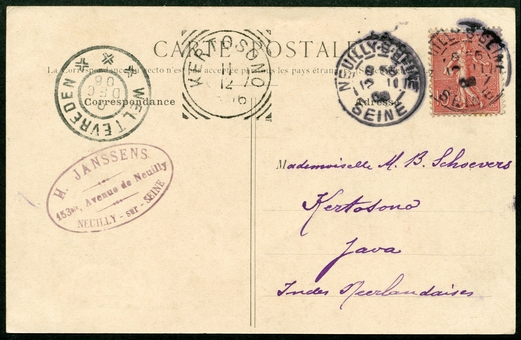 CARTE POSTALE
La Correspondance au recto n'est pas acceptée par tous les pays étrangers
Correspondance
Adresse
WELTEVREDEN
DEC
KERTOSONO
11
12
NEUILLY-S-SEINE
SEINE
NEUILLY-S-SEINE
SEINE
H. JANSSENS
153bis, Avenue de Neuilly
NEUILLY-sur-SEINE
Mademoiselle M. B. Schoevers
Kertosono
Java
Indes Neerlandaises